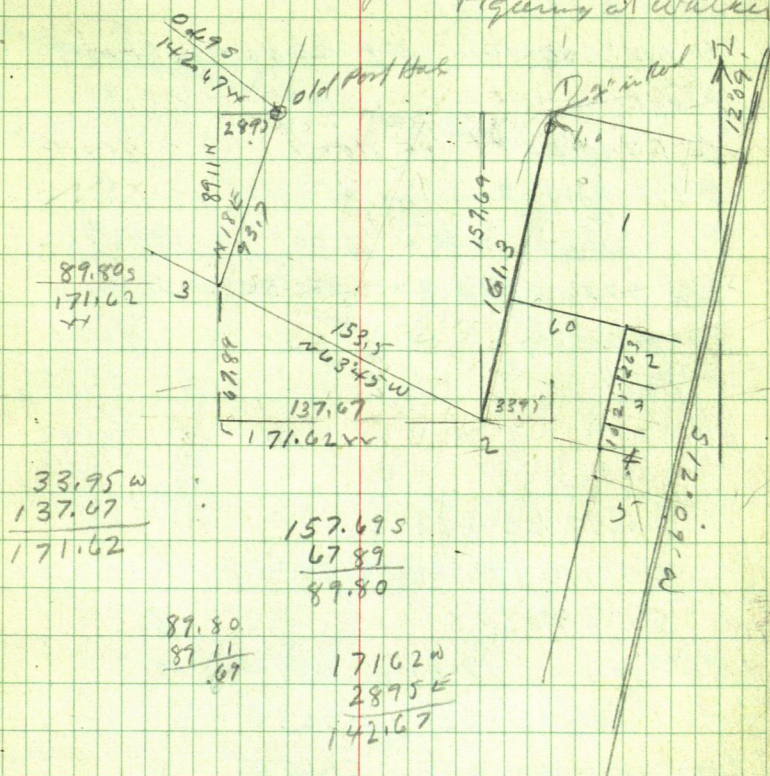 Figuring at Walker
0.69 S
142.67 W
Old Post Hole
2895
89.11 N
N 18 E
93.7
89.80 S
171.62
W
3
67.89
153.5
N 63°45 W
137.67
171.62 W
1
157.69
161.3
60
3395
2
1
2
3
4
5
12°09'
S 12°09' W
33.95 W
137.67
171.62
157.69 S
67 89
89.80
89.80
89 11
.69
171 62 W
28 95 E
142.67